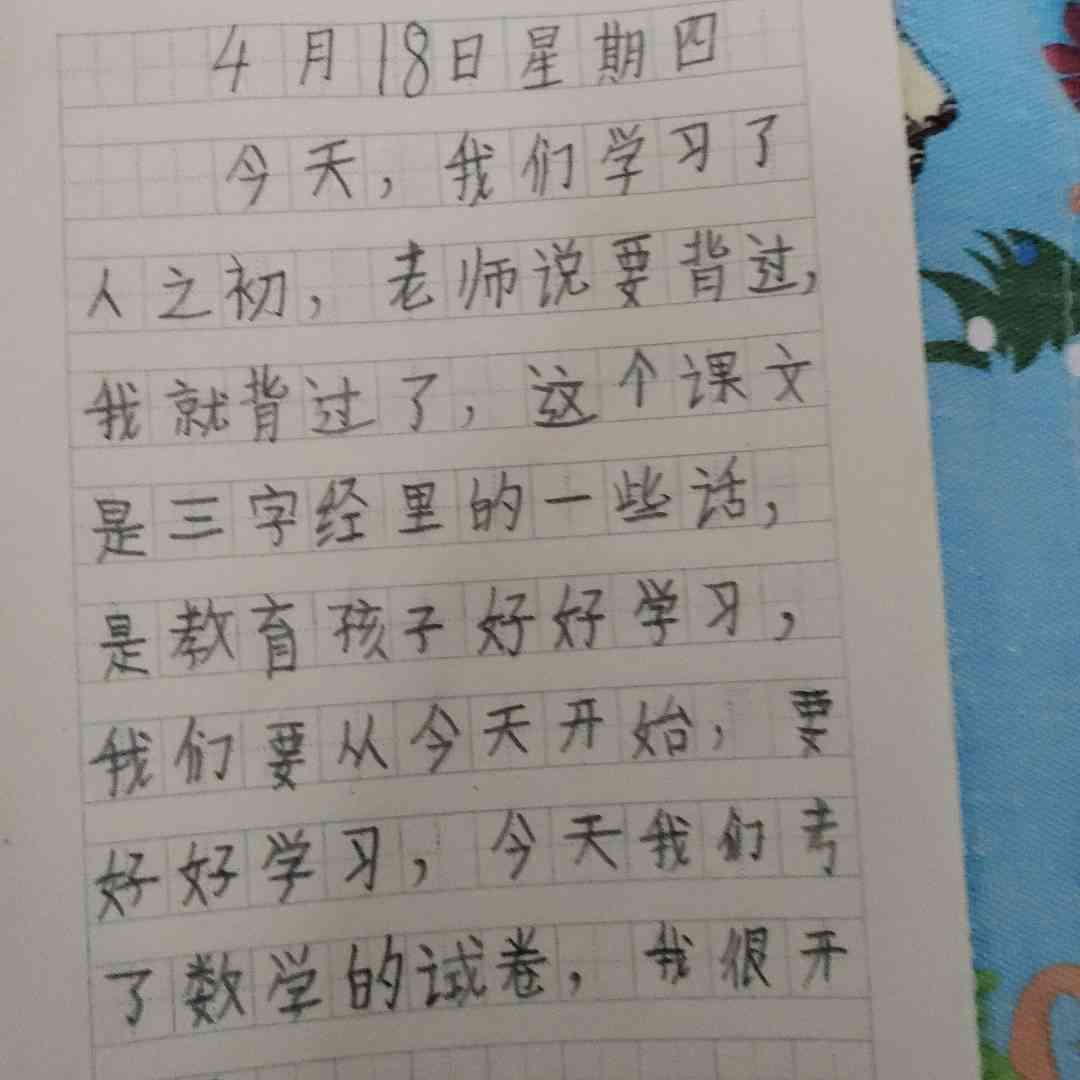 4月18日星期四
今天,我们学习了
人之初,老师说要背过,
我就背过了,这个课文
是三字经里的一些话,
是教育孩子好好学习,
我们要从今天开始,要
好好学习,今天我们考
了数学的试卷,我很开